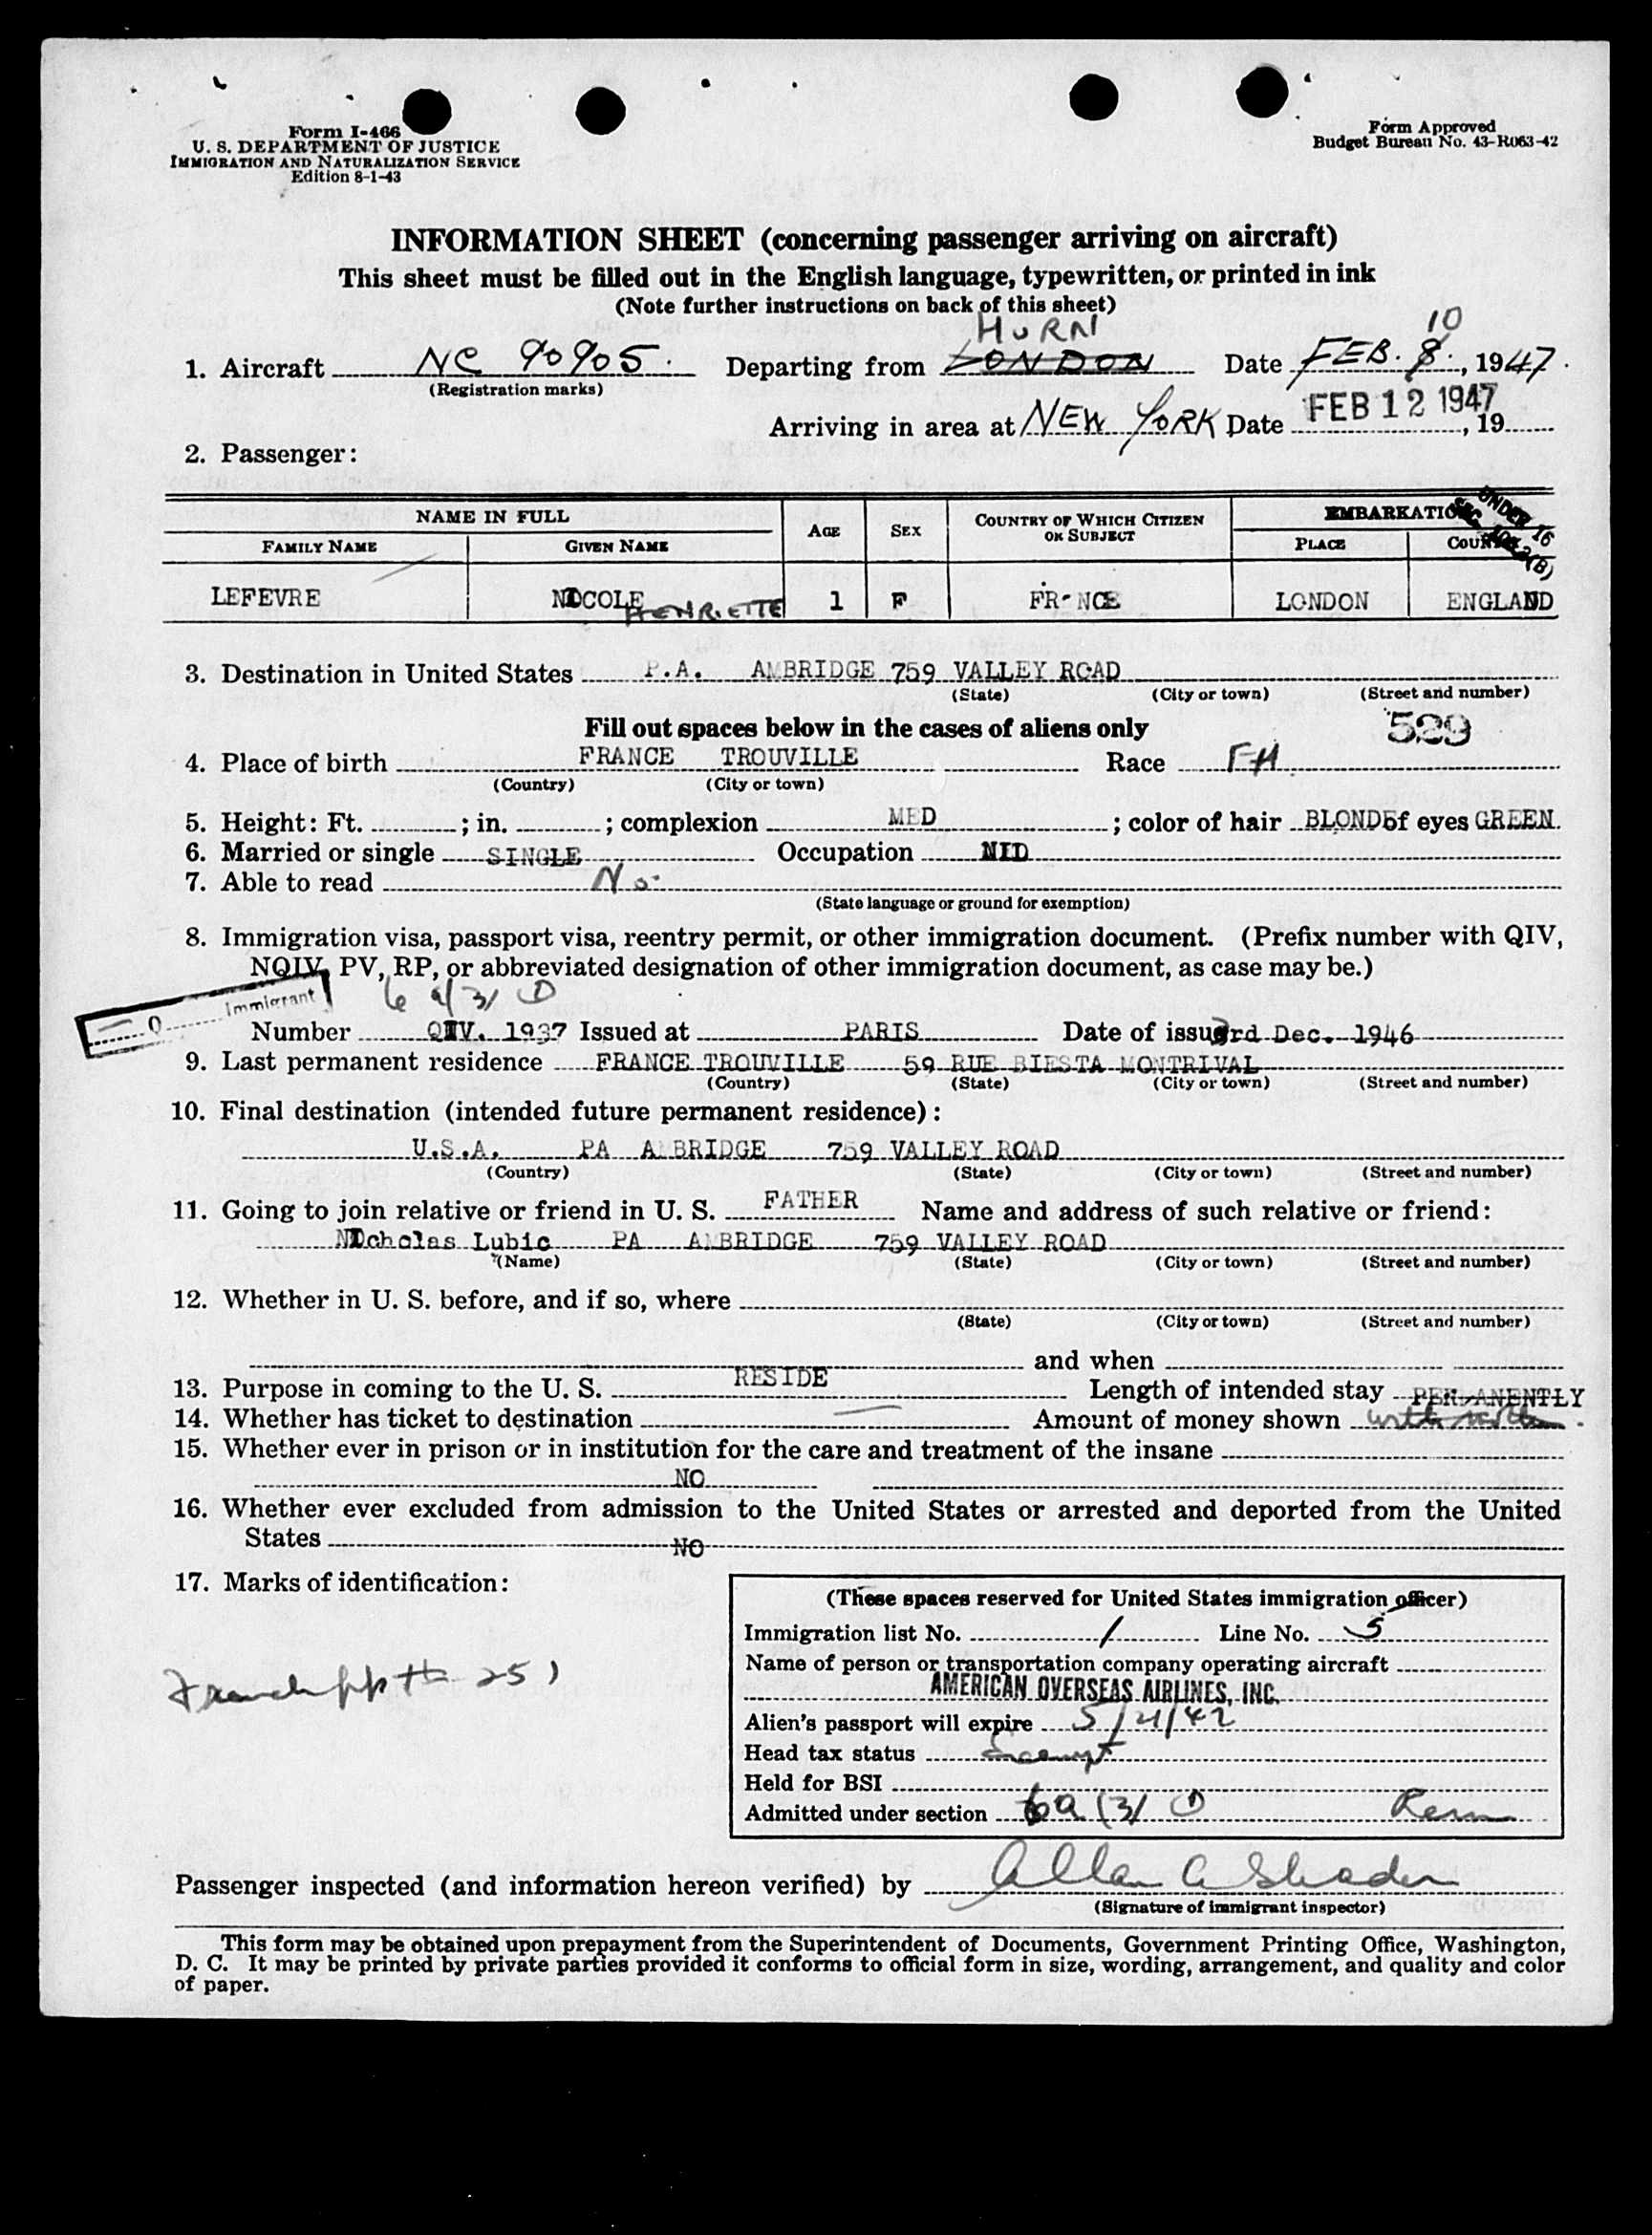 Form I-466
U. S. DEPARTMENT OF JUSTICE
IMMIGRATION AND NATURALIZATION SERVICE
Edition 8-1-43
Form Approved
Budget Bureau No. 43-R063-42
INFORMATION SHEET (concerning passenger arriving on aircraft)
This sheet must be filled out in the English language, typewritten, or printed in ink
(Note further instructions on back of this sheet)
HURN 10
1. Aircraft NC 90905. Departing from LONDON Date FEB. 8., 1947.
(Registration marks)
Arriving in area at NEW YORK Date FEB 12 1947, 19
2. Passenger:
NAME IN FULL AGE SEX COUNTRY OF WHICH CITIZEN OR SUBJECT EMBARKATION
FAMILY NAME GIVEN NAME PLACE COUNTRY
UNDER 16
LEFEVRE NICOLE HENRIETTE 1 F FRANCE LONDON ENGLAND
3. Destination in United States P.A. AMBRIDGE 759 VALLEY ROAD
(State) (City or town) (Street and number)
Fill out spaces below in the cases of aliens only 529
4. Place of birth FRANCE TROUVILLE Race FH
(Country) (City or town)
5. Height: Ft. ; in. ; complexion MED ; color of hair BLOND of eyes GREEN.
6. Married or single SINGLE Occupation NID
7. Able to read No.
(State language or ground for exemption)
8. Immigration visa, passport visa, reentry permit, or other immigration document. (Prefix number with QIV,
NQIV, PV, RP, or abbreviated designation of other immigration document, as case may be.)
Q Immigrant
6 a/3/ D
Number QIV. 1937 Issued at PARIS Date of issue 3rd Dec. 1946
9. Last permanent residence FRANCE TROUVILLE 59 RUE BIESTA MONTRIVAL
(Country) (State) (City or town) (Street and number)
10. Final destination (intended future permanent residence):
U.S.A. PA AMBRIDGE 759 VALLEY ROAD
(Country) (State) (City or town) (Street and number)
11. Going to join relative or friend in U. S. FATHER Name and address of such relative or friend:
NIcholas Lubic PA AMBRIDGE 759 VALLEY ROAD
(Name) (State) (City or town) (Street and number)
12. Whether in U. S. before, and if so, where
(State) (City or town) (Street and number)
and when
13. Purpose in coming to the U. S. RESIDE Length of intended stay PERMANENTLY
14. Whether has ticket to destination — Amount of money shown with mother.
15. Whether ever in prison or in institution for the care and treatment of the insane
NO
16. Whether ever excluded from admission to the United States or arrested and deported from the United
States NO
17. Marks of identification:
French ppt 251
(These spaces reserved for United States immigration officer)
Immigration list No. 1 Line No. 5
Name of person or transportation company operating aircraft
AMERICAN OVERSEAS AIRLINES, INC.
Alien's passport will expire
Head tax status Exempt
Held for BSI
Admitted under section 6a (3) D Perm
Passenger inspected (and information hereon verified) by Allan
(Signature of immigrant inspector)
This form may be obtained upon prepayment from the Superintendent of Documents, Government Printing Office, Washington,
D. C. It may be printed by private parties provided it conforms to official form in size, wording, arrangement, and quality and color
of paper.